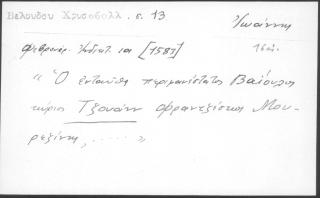 Βελουδου Χρυσοβουλλ. σ. 13
Ἰωάννης
Φεβρουαρ. Ἰνδικτ. ια [1583]
16 αι.
« Ὁ ἐνταῦθα περιφανέστατος Βαϊουλος
κύριος Τζουὰν Φραντζέσκος Μου-
ρεζίνης, ..... »